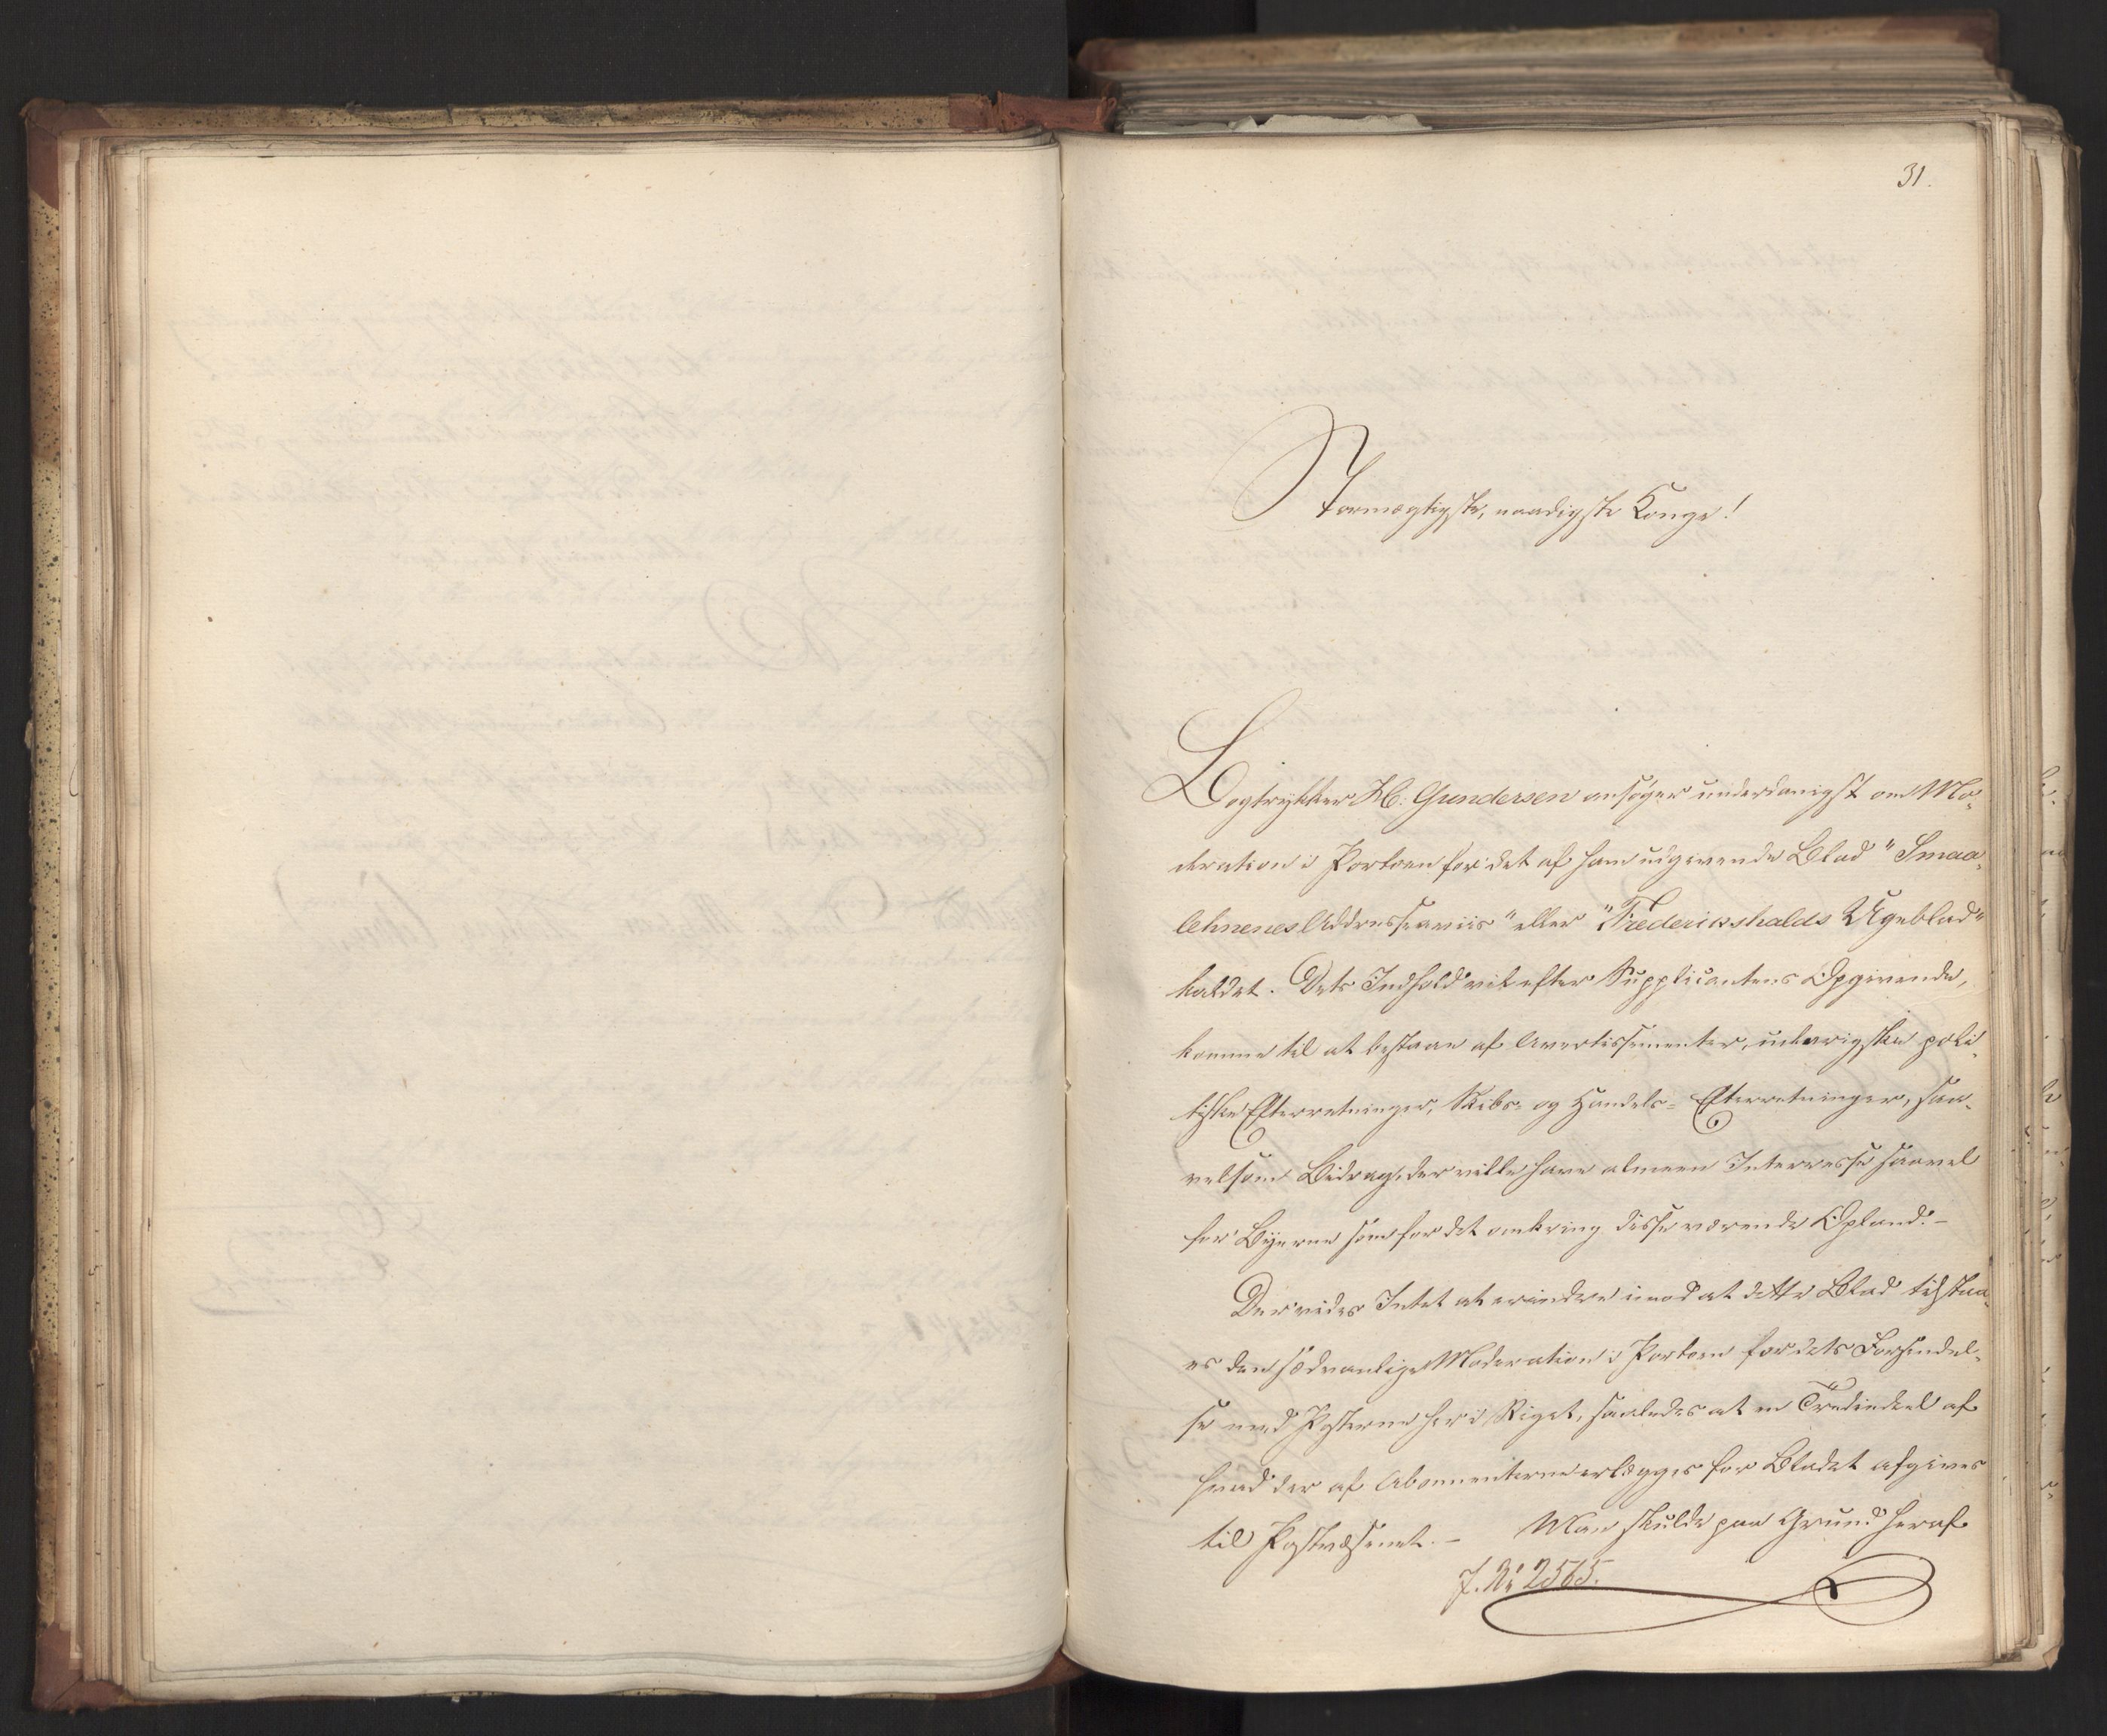 31.
Stormægtigste, naadigste Konge!
Bogtrykker H: Gundersen ansøger underdanigst om Mo-
deration i Portoen for det af ham udgivende Blad "Smaa-
lehnenes Addresseaviis" eller "Frederikshalds Ugeblad"
kaldet. Dets Indhold vil efter Supplicantens Opgivende,
komme til at bestaae af Avertissementer, udvrigske poli-
tiske Efterretninger, Skibs- og Handels- Efterretninger, saa-
velsom Bidrag, der ville have almeen Interesse saavel
for Byerne som for det omkring disse værende Opland. -
Der vides Intet at erindre imod at dette Blad tilstaa-
es den sædvanlige Moderation i Portoen for dets Forsendel-
se med Posterne her i Riget, saaledes at en Trediedeel af
hvad der af Abonnenterne erlægges for Bladet afgives
til Postvæsenet. - Man skulde paa Grund heraf
J. No 2565.